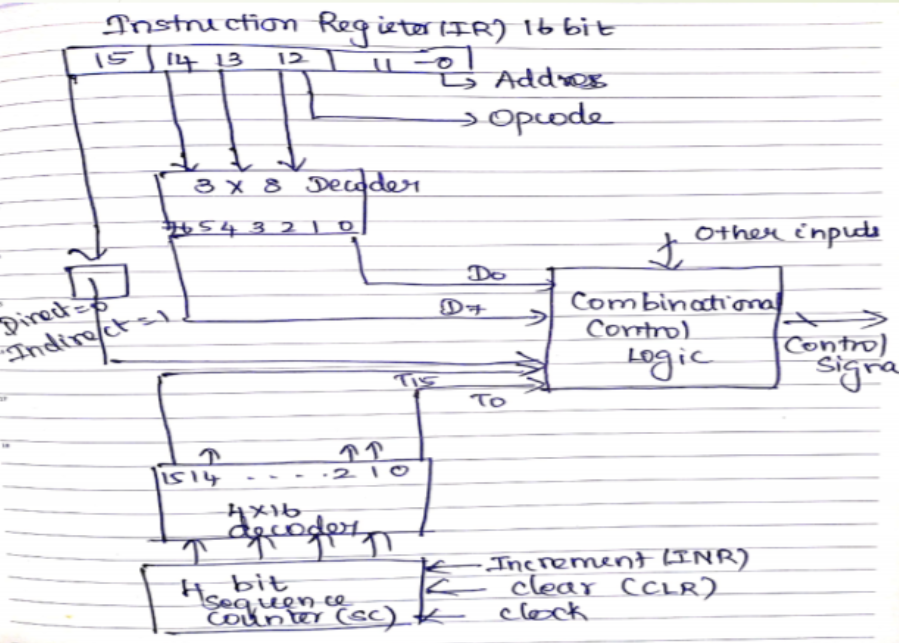 Instruction Register (IR) 16 bit
15 14 13 12 11 - 0
Address
Opcode
3 x 8 Decoder
7 6 5 4 3 2 1 0
Other inputs
Do
D7
Direct = 0
Indirect = 1
Combinational
Control
Logic
Control
Signa
T15
To
15 14 - - - - . 2 1 0
4x16
decoder
4 bit
sequence
counter (sc)
Increment (INR)
clear (CLR)
clock